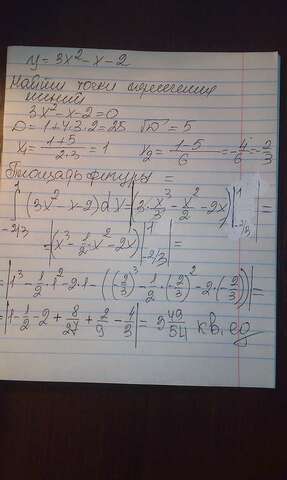 y = 3x² - x - 2
Найти точки пересечения
линий
3x² - x - 2 = 0
D = 1 + 4·3·2 = 25 √D = 5
x₁ = (1+5)/(2·3) = 1 x₂ = (1-5)/6 = -4/6 = -2/3
Площадь фигуры =
∫_{-2/3}^{1} (3x² - x - 2)dx = |3·x³/3 - x²/2 - 2x| |_{-2/3}^{1} =
= |(x³ - 1/2 x² - 2x)|_{-2/3}^{1}| =
= |1³ - 1/2·1² - 2·1 - ((-2/3)³ - 1/2·(-2/3)² - 2·(-2/3))| =
= |1 - 1/2 - 2 + 8/27 + 2/9 - 4/3| =